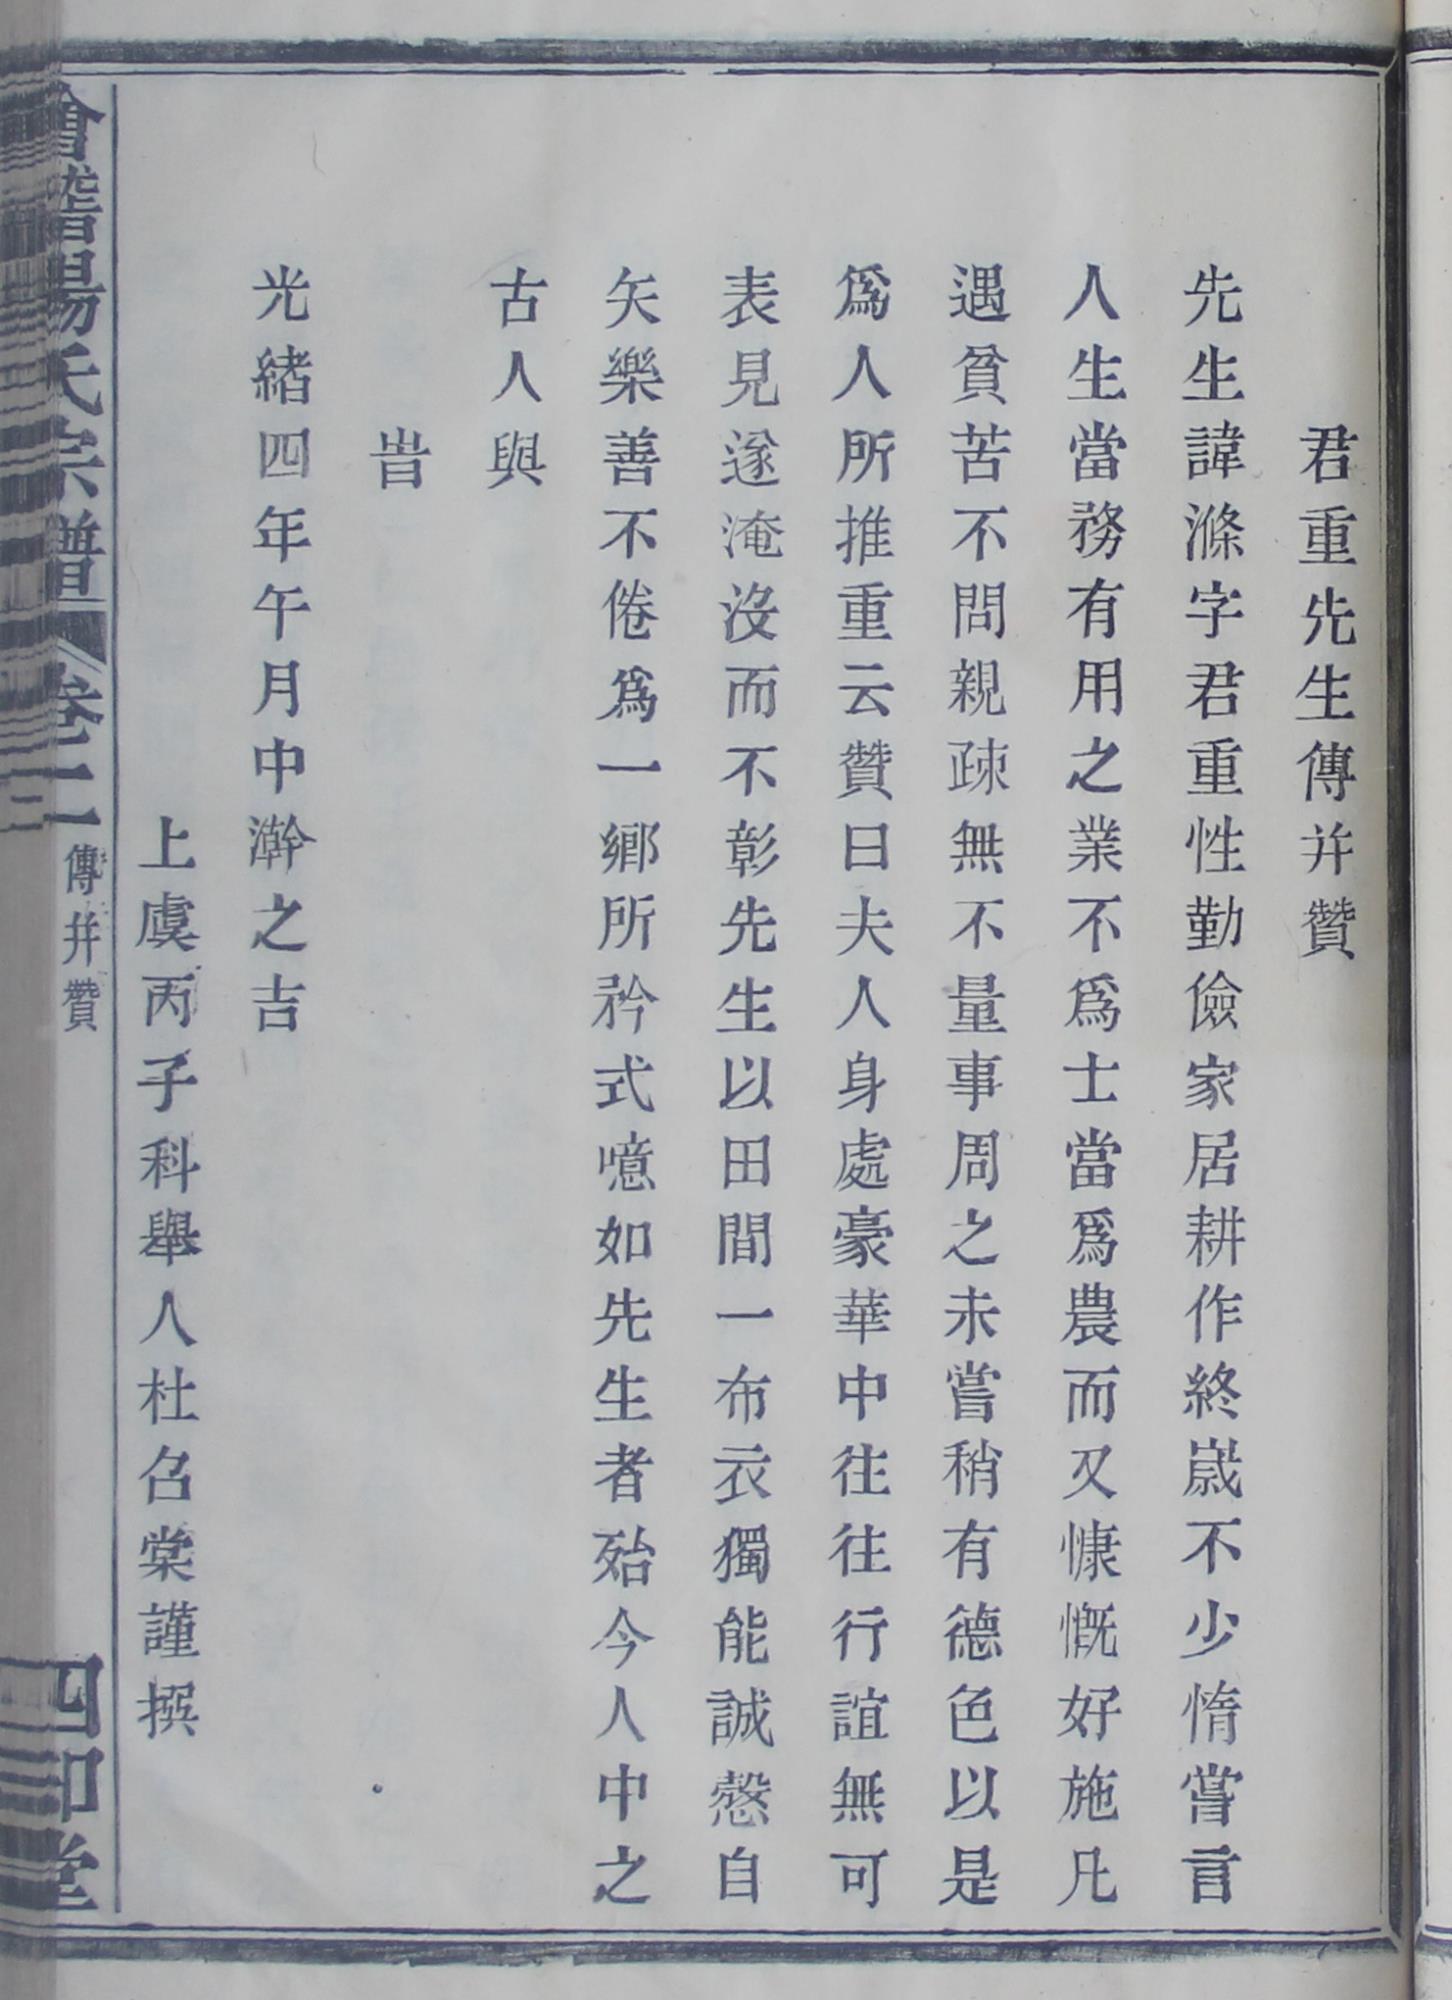 君重先生傳并贊
先生諱滌字君重性勤儉家居耕作終嵗不少惰嘗言
人生當務有用之業不爲士當爲農而又慷慨好施凡
遇貧苦不問親疎無不量事周之未嘗稍有德色以是
爲人所推重云贊曰夫人身處豪華中往往行誼無可
表見遂淹沒而不彰先生以田間一布衣獨能誠慤自
矢樂善不倦爲一鄉所矜式噫如先生者殆今人中之
古人與
旹
光緒四年午月中澣之吉
上虞丙子科舉人杜召棠謹撰
會稽楊氏宗譜
卷二
傳并贊
四知堂